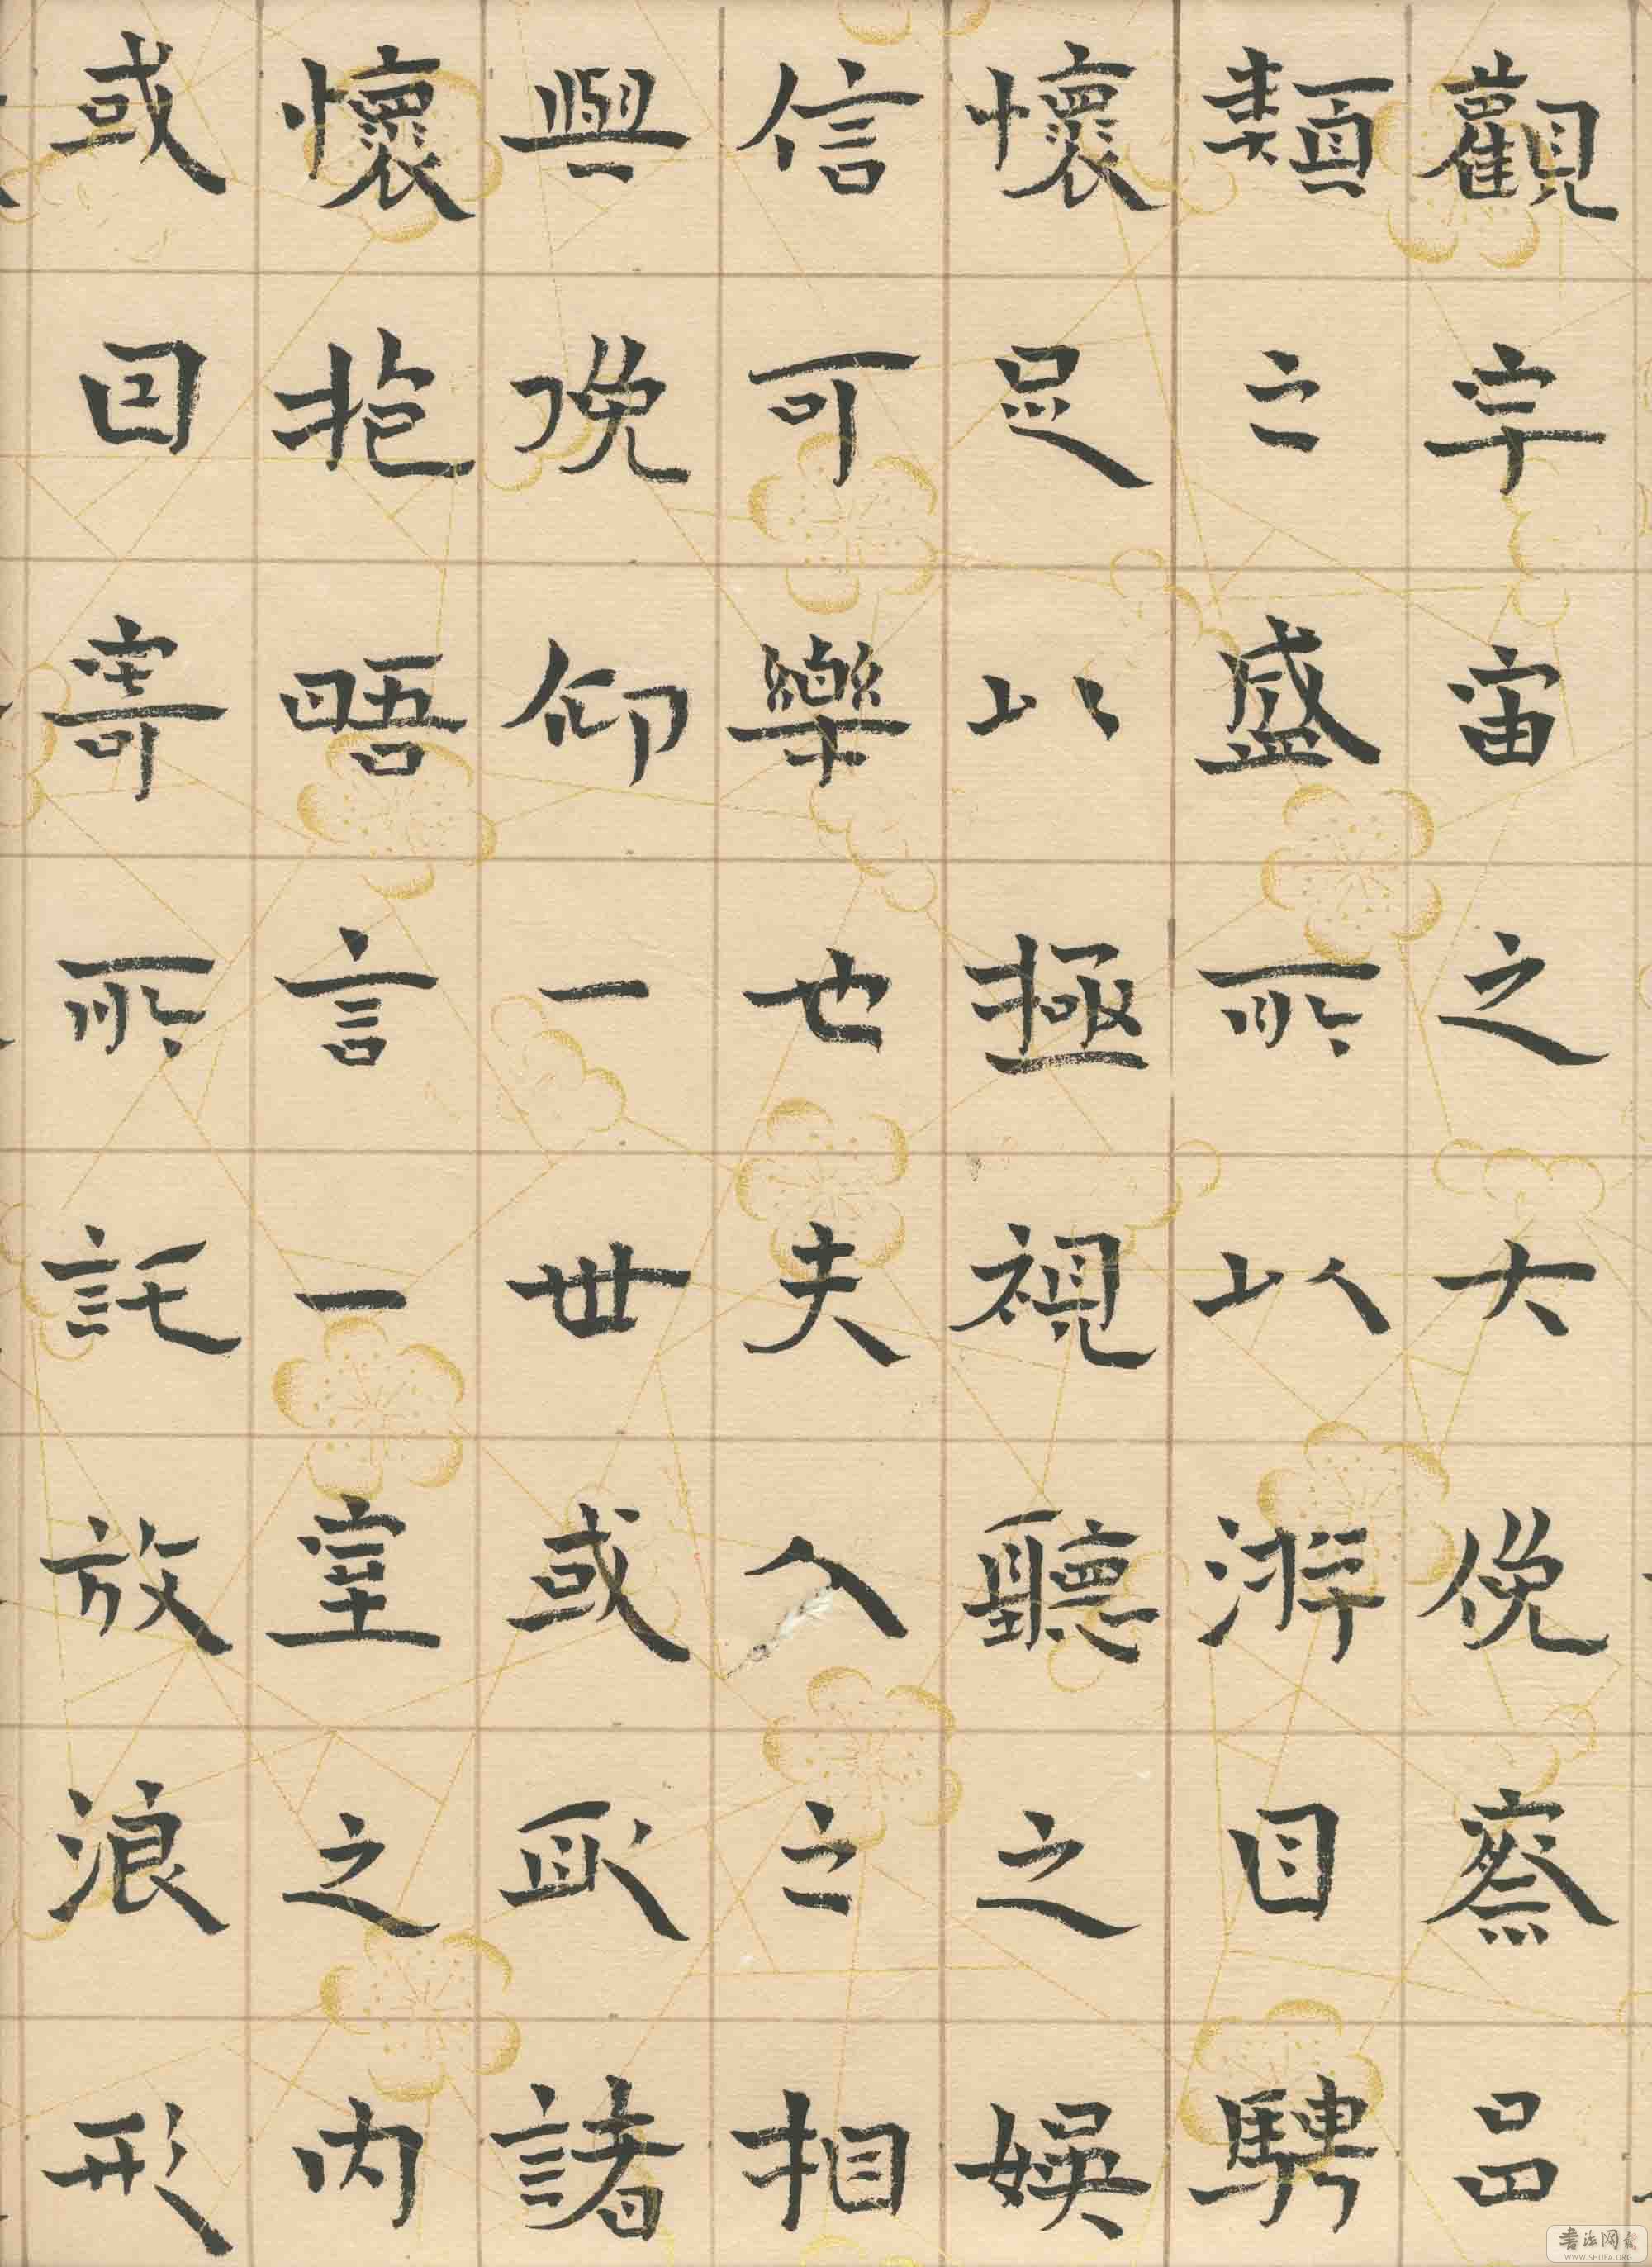 觀宇宙之大俯察品
類之盛所以游目騁
懷足以極視聽之娛
信可樂也夫人之相
與俛仰一世或取諸
懷抱晤言一室之內
或因寄所託放浪形
書法网
WWW.SHUFA.ORG